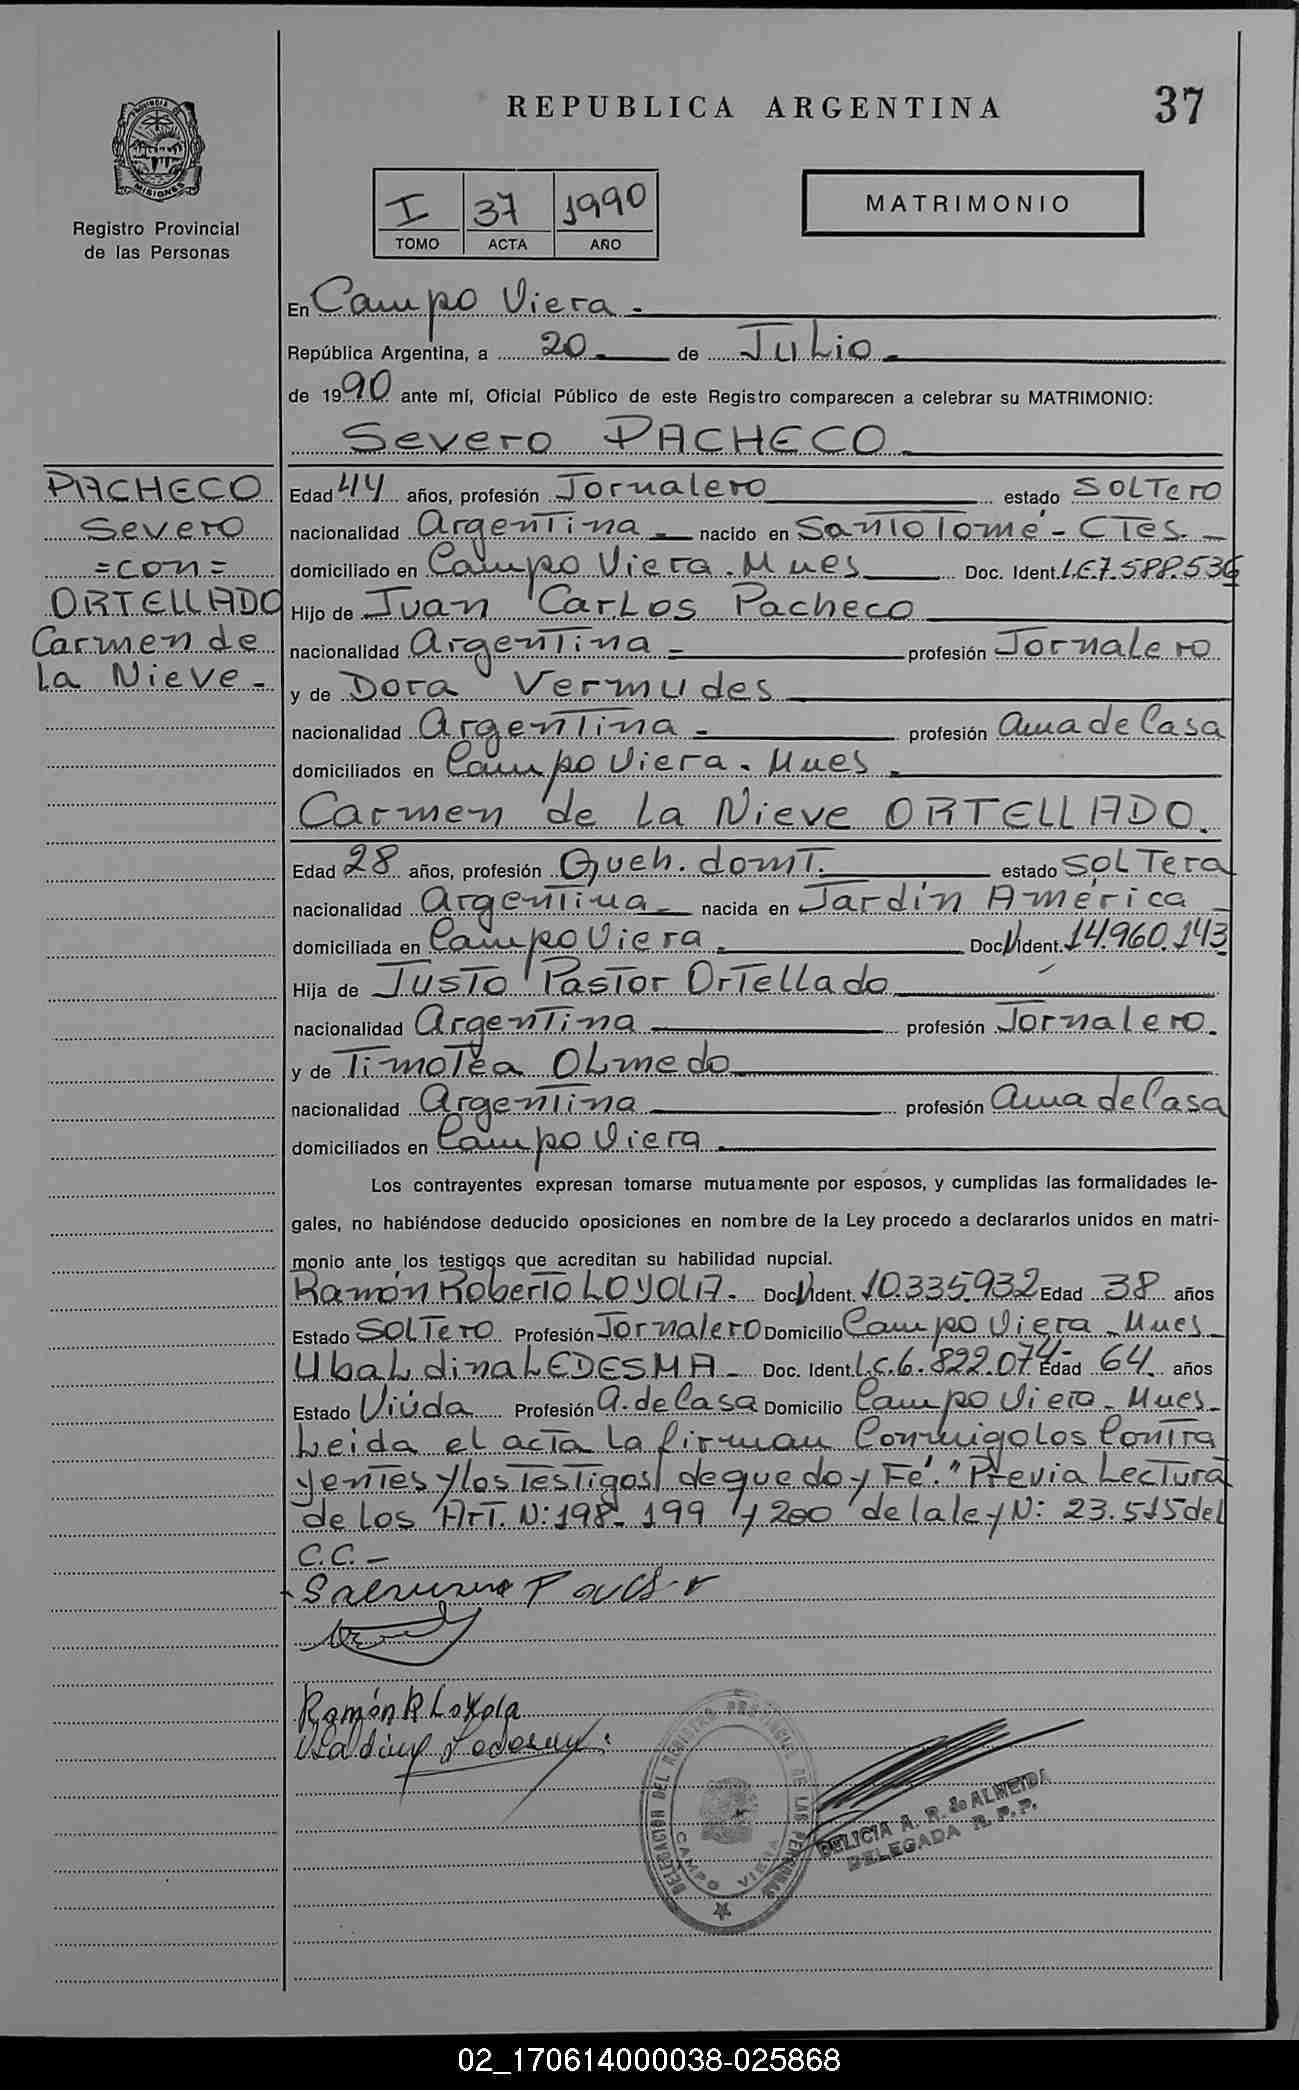 REPUBLICA ARGENTINA
37
PROVINCIA DE MISIONES
Registro Provincial
de las Personas
I 37 1990
TOMO ACTA AÑO
MATRIMONIO
En Campo Viera.-
República Argentina, a 20 de Julio.-
de 1990 ante mí, Oficial Público de este Registro comparecen a celebrar su MATRIMONIO:
Severo PACHECO
PACHECO
Severo
=con=
ORTELLADO
Carmen de
la Nieve-
Edad 44 años, profesión Jornalero estado SOLTero
nacionalidad Argentina.- nacido en Santo Tomé - CTes.-
domiciliado en Campo Viera. Mnes Doc. Ident. L.E 7.588.536
Hijo de Juan Carlos Pacheco
nacionalidad Argentina - profesión Jornalero
y de Dora Vermudes
nacionalidad Argentina.- profesión Ama de Casa
domiciliados en Campo Viera. Mnes.
Carmen de la Nieve ORTELLADO.
Edad 28 años, profesión Queh. domt. estado SOLTera
nacionalidad Argentina nacida en Jardín América
domiciliada en Campo Viera. Doc. N Ident. 14.960.143
Hija de Justo Pastor Ortellado
nacionalidad Argentina profesión Jornalero.
y de Timotea Olmedo
nacionalidad Argentina profesión Ama de Casa
domiciliados en Campo Viera
Los contrayentes expresan tomarse mutuamente por esposos, y cumplidas las formalidades le-
gales, no habiéndose deducido oposiciones en nombre de la Ley procedo a declararlos unidos en matri-
monio ante los testigos que acreditan su habilidad nupcial.
Ramón Roberto LOYOLA. Doc. N Ident. 10.335.932 Edad 38 años
Estado SOLTero Profesión Jornalero Domicilio Campo Viera - Mnes-
Ubaldina LEDESMA - Doc. Ident. L.C. 6.822.074- Edad 64 años
Estado Viúda Profesión A. de Casa Domicilio Campo Viera - Mnes-
Leida el acta la firman Conmigo los Contra
yentes y los testigos/ de que doy Fé." Previa Lectura
de los Art. N: 198- 199 y 200 de la ley N: 23.515 del
C.C.-
Ramón R Loyola
DELEGACION DEL REGISTRO PROVINCIAL DE LAS PERSONAS
CAMPO VIERA
DELICIA A. R. de ALMEIDA
DELEGADA R. P. P.
02_170614000038-025868